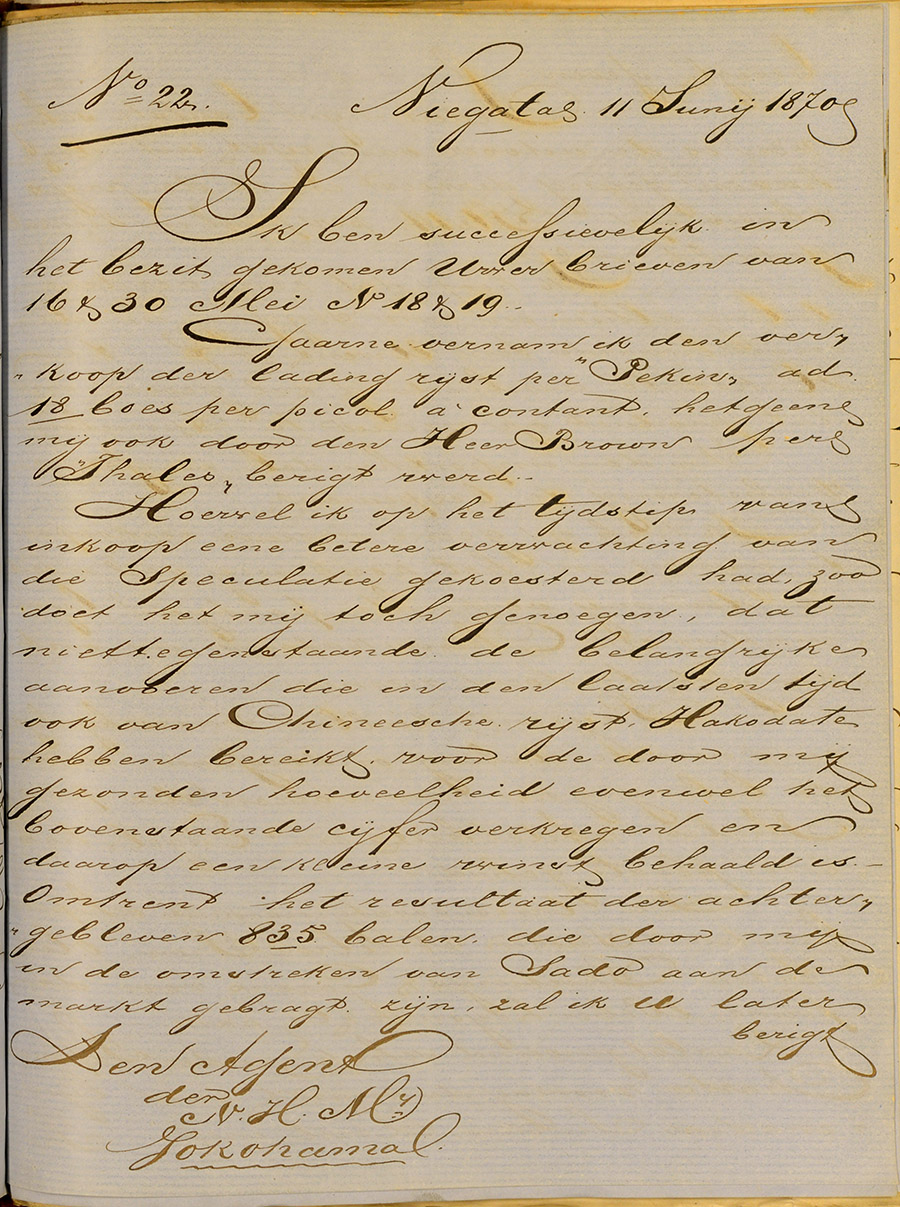 No 22.
Niegata 11 Junij 1870
Ik ben successievelijk in
het bezit gekomen Uwer brieven van
16 & 30 Mei No 18 & 19.
Gaarne vernam ik den ver„
„koop der lading rijst per "Pekin„ ad
18 boes per picol à contant, hetgeen
mij ook door den Heer Brown per
"Thales„ berigt werd.
Hoewel ik op het tijdstip van
inkoop eene betere verwachting van
die Speculatie gekoesterd had, zoo
doet het mij toch genoegen, dat
niettegenstaande de belangrijke
aanvoeren die in den laatsten tijd
ook van Chineesche rijst, Hakodate
hebben bereikt voor de door mij
gezonden hoeveelheid evenwel het
bovenstaande cijfer verkregen en
daarop een kleine winst behaald is.—
Omtrent het resultaat der achter„
„gebleven 835 balen, die door mij
in de omstreken van Sado aan de
markt gebragt zijn, zal ik U later
berigt
Den Agent
der
N. H. My
Yokohama.